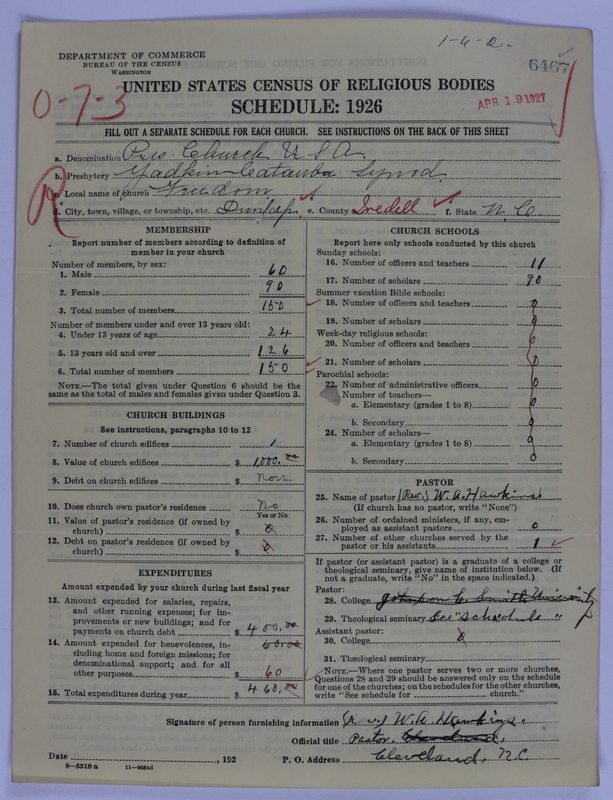 1-6-2.
DEPARTMENT OF COMMERCE
BUREAU OF THE CENSUS
WASHINGTON
6467
0-7-3
UNITED STATES CENSUS OF RELIGIOUS BODIES
APR 19 1927
SCHEDULE: 1926
FILL OUT A SEPARATE SCHEDULE FOR EACH CHURCH. SEE INSTRUCTIONS ON THE BACK OF THIS SHEET
a. Denomination Pres. Church U S A
b. Presbytery Yadkin Catawba Synod.
R
c. Local name of church Freedom
d. City, town, village, or township, etc. e. County Iredell f. State N. C.
MEMBERSHIP
Report number of members according to definition of
member in your church
Number of members, by sex:
1. Male 60
2. Female 90
3. Total number of members 150
Number of members under and over 13 years old:
4. Under 13 years of age 24
5. 13 years old and over 126
6. Total number of members 150
NOTE.—The total given under Question 6 should be the
same as the total of males and females given under Question 3.
CHURCH BUILDINGS
See instructions, paragraphs 10 to 12
7. Number of church edifices 1
8. Value of church edifices $ 1,000.00
9. Debt on church edifices $ non
10. Does church own pastor's residence No
Yes or No
11. Value of pastor's residence (if owned by
church) $ 0
12. Debt on pastor's residence (if owned by
church) $ 0
EXPENDITURES
Amount expended by your church during last fiscal year
13. Amount expended for salaries, repairs,
and other running expenses; for im-
provements or new buildings; and for
payments on church debt $ 400.00
14. Amount expended for benevolences, in- 60.00
cluding home and foreign missions; for
denominational support; and for all
other purposes $ 60
15. Total expenditures during year $ 460.00
CHURCH SCHOOLS
Report here only schools conducted by this church
Sunday schools:
16. Number of officers and teachers 11
17. Number of scholars 90
Summer vacation Bible schools:
18. Number of officers and teachers 0
19. Number of scholars 0
Week-day religious schools:
20. Number of officers and teachers 0
21. Number of scholars 0
Parochial schools:
22. Number of administrative officers 0
Number of teachers—
a. Elementary (grades 1 to 8) 0
b. Secondary 0
24. Number of scholars—
a. Elementary (grades 1 to 8) 0
b. Secondary 0
PASTOR
25. Name of pastor (Rev.) W. A. Hawkins
(If church has no pastor, write "None")
26. Number of ordained ministers, if any, em-
ployed as assistant pastors 0
27. Number of other churches served by the
pastor or his assistants 1
If pastor (or assistant pastor) is a graduate of a college or
theological seminary, give name of institution below. (If
not a graduate, write "No" in the space indicated.)
Pastor:
28. College Johnson C Smith University
29. Theological seminary See "schedule "
Assistant pastor:
30. College 0
31. Theological seminary
NOTE.—Where one pastor serves two or more churches,
Questions 28 and 29 should be answered only on the schedule
for one of the churches; on the schedules for the other churches,
write "See schedule for church."
Signature of person furnishing information Rev) W. A. Hawkins.
Official title Pastor, Cleveland,
Date , 192 P. O. Address Cleveland, N.C.
8-5318 a 11-9084d